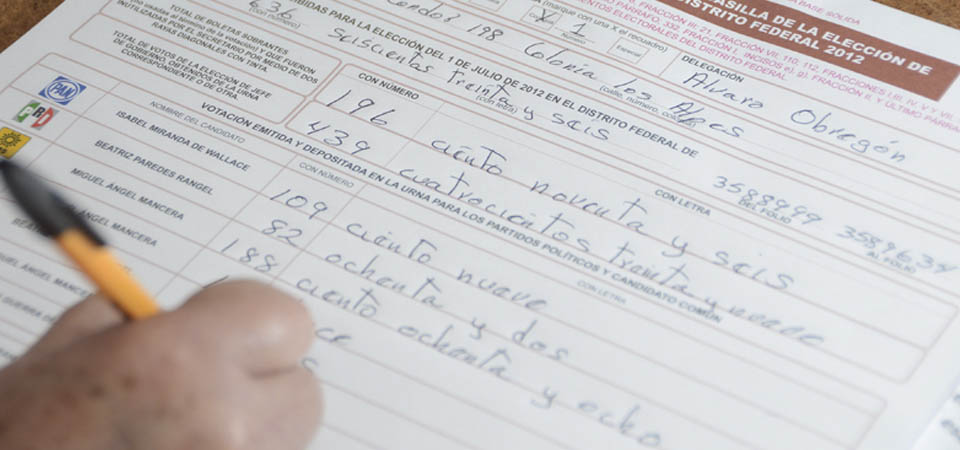 ASILLA DE LA ELECCIÓN DE
DISTRITO FEDERAL 2012
BASE SOLIDA
FRACCIÓN III, 21, FRACCIÓN VII, 110, 112, FRACCIONES I, III, IV, V Y VII
PÁRRAFO, XXI, FRACCIÓN I, INCISOS e), g), FRACCIÓN II, Y ÚLTIMO PÁRRA
MENTOS ELECTORALES DEL DISTRITO FEDERAL
(marque con una X el recuadro)
X 1
Número
Especial
DELEGACIÓN
Alvaro Obregón
198 Colonia Los Alpes
(calle, número, co
TOTAL DE BOLETAS SOBRANTES
INUTILIZADAS POR EL SECRETARIO POR MEDIO DE DOS
RAYAS DIAGONALES CON TINTA.
636
(con número)
BIDAS PARA LA ELECCIÓN DEL 1 DE JULIO DE 2012 EN EL DISTRITO FEDERAL DE
seiscientas treinta y seis
(con letra)
3589999
DEL FOLIO
3589634
AL FOLIO
TOTAL DE VOTOS DE LA ELECCIÓN DE JEFE
DE GOBIERNO, OBTENIDOS DE LA URNA
CORRESPONDIENTE O DE OTRA.
CON NÚMERO
CON LETRA
196 ciento noventa y seis
439 cuatrocientos treinta y nueve
VOTACIÓN EMITIDA Y DEPOSITADA EN LA URNA PARA LOS PARTIDOS POLÍTICOS Y CANDIDATO COMÚN
NOMBRE DEL CANDIDATO
CON NÚMERO
CON LETRA
PAN
ISABEL MIRANDA DE WALLACE
109 ciento nueve
PRD
BEATRIZ PAREDES RANGEL
82 ochenta y dos
MIGUEL ÁNGEL MANCERA
188 ciento ochenta y ocho
ÁNGEL MANCERA